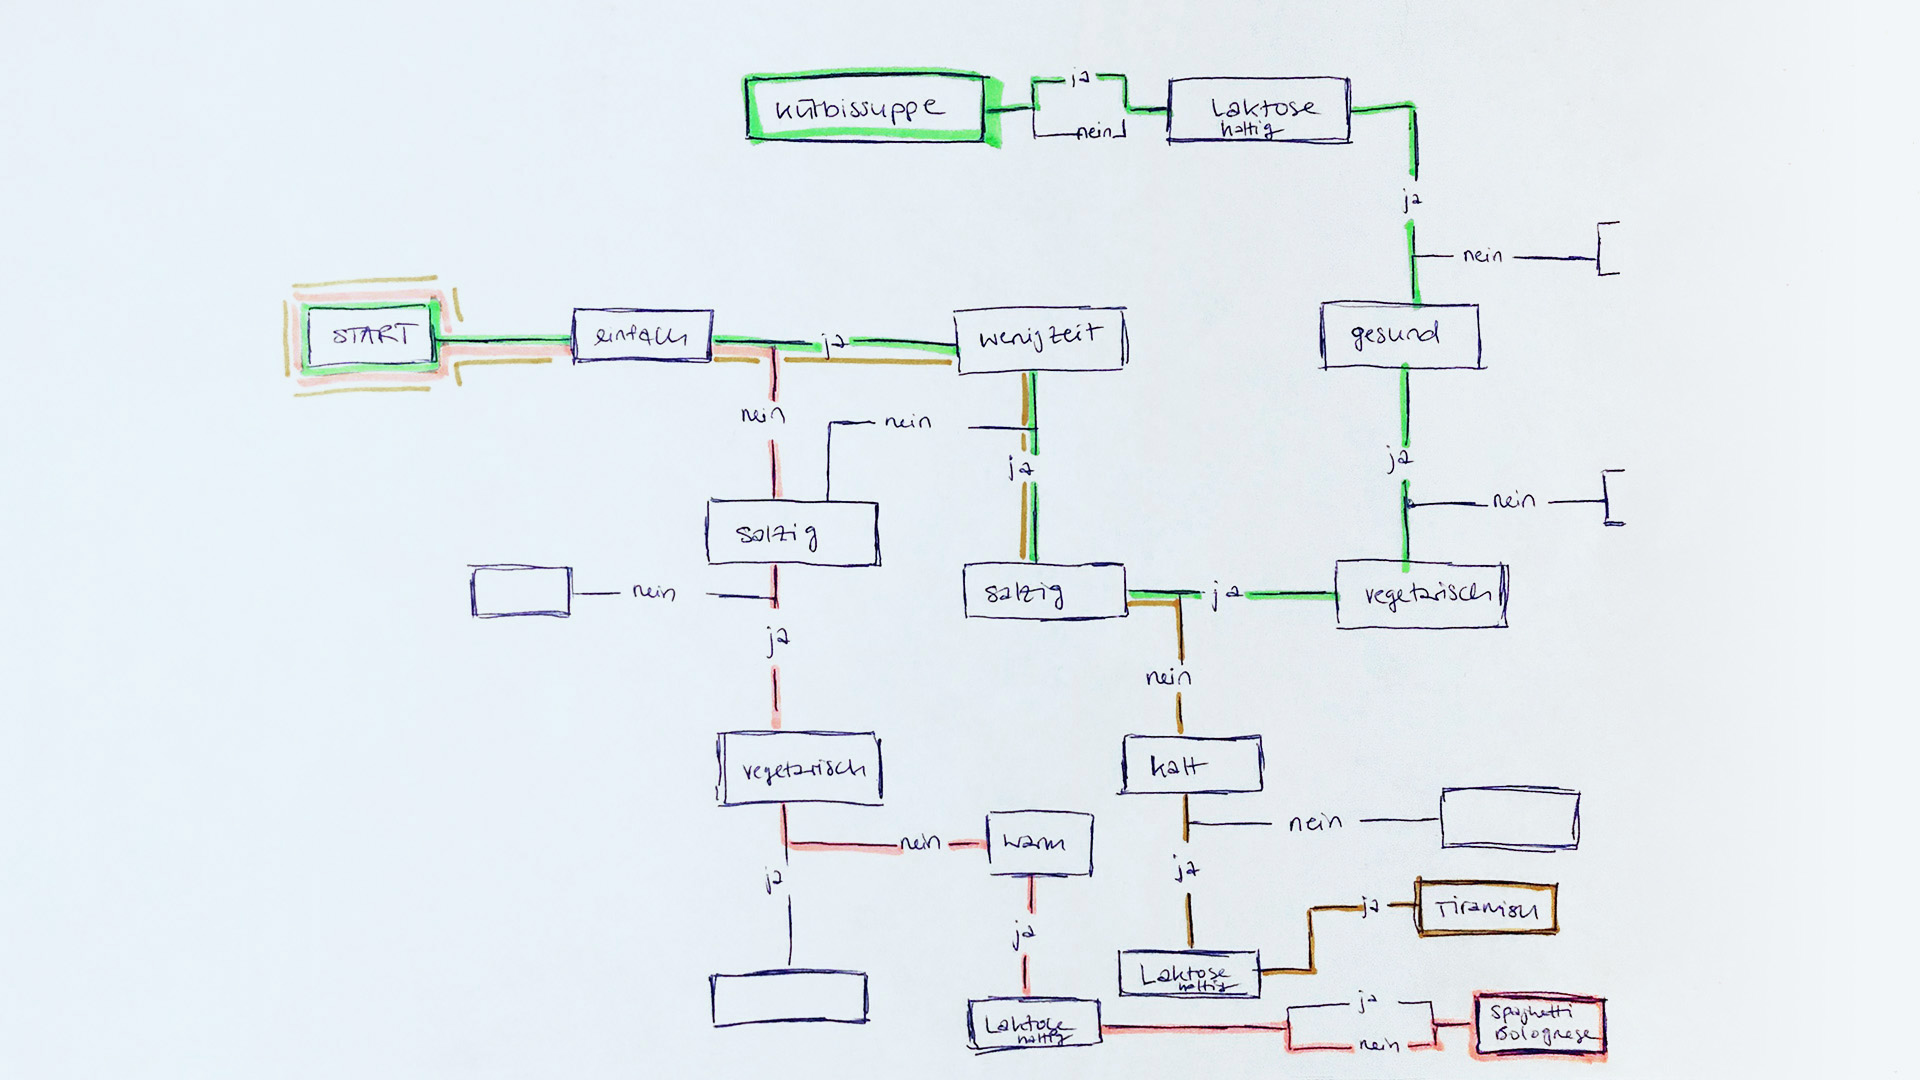 Kürbissuppe
ja
nein
Laktose
haltig
ja
nein
START
einfach
ja
wenig zeit
gesund
nein
nein
ja
ja
nein
salzig
salzig
ja
vegetarisch
nein
ja
nein
vegetarisch
kalt
nein
warm
nein
ja
ja
ja
Tiramisu
ja
Laktose
haltig
Laktose
haltig
ja
nein
Spaghetti
Bolognese